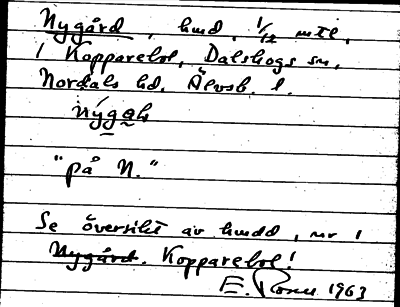 Nygård, hmd. 1/12 mtl,
i Kopparebol, Dalskogs sn,
Nordals hd. Älvsb. l.
nýgaɧ
"på N."
Se översikt av hmdd, nr 1
Nygård. Kopparebol!
E. 1963